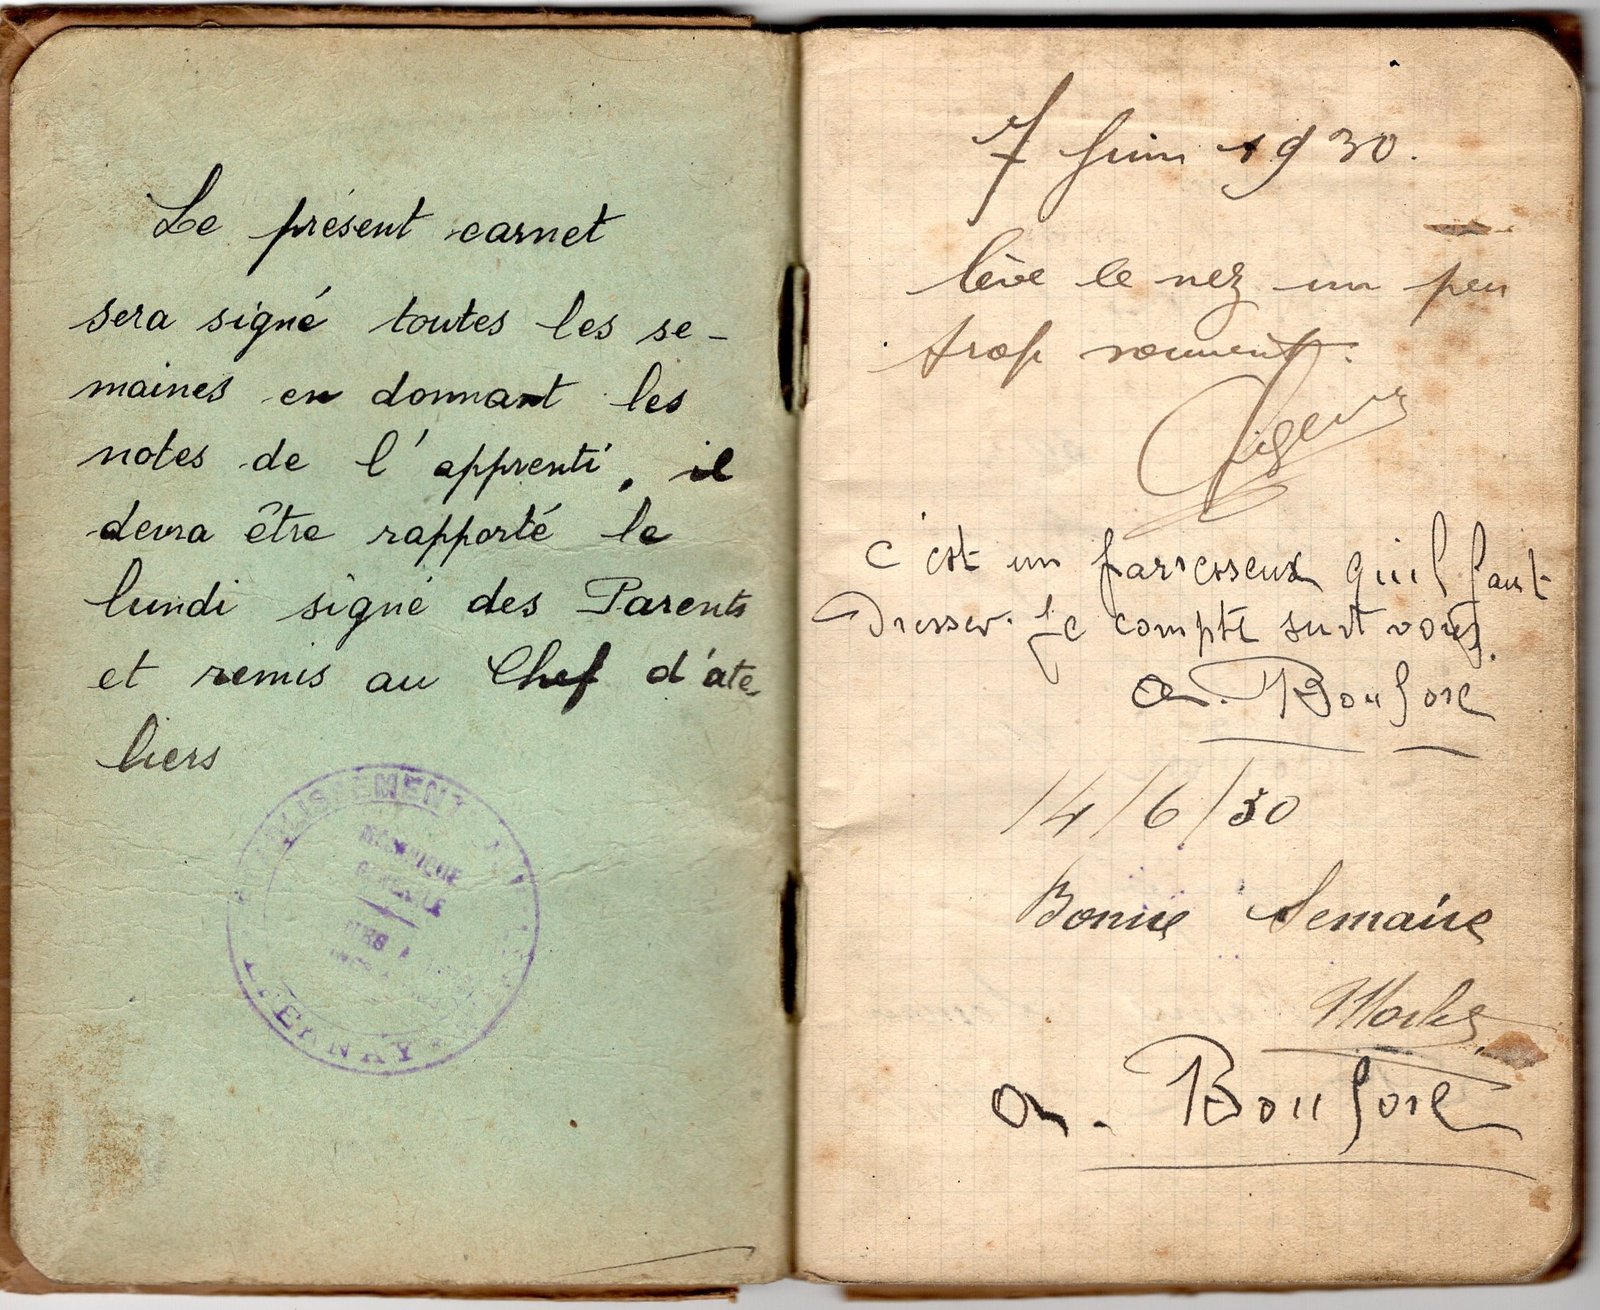 Le présent carnet
sera signé toutes les se-
maines en donnant les
notes de l'apprenti, il
devra être rapporté le
lundi signé des Parents
et remis au Chef d'ate
liers
MÉCANIQUE
GÉNÉRALE
7 Juin 1930.
lève le nez un peu
trop souvent.
c'est un parresseux qu'il faut
Dresser. Je compte surt vous.
a. Boufore
14/6/30
Bonne Semaine
a. Boufore